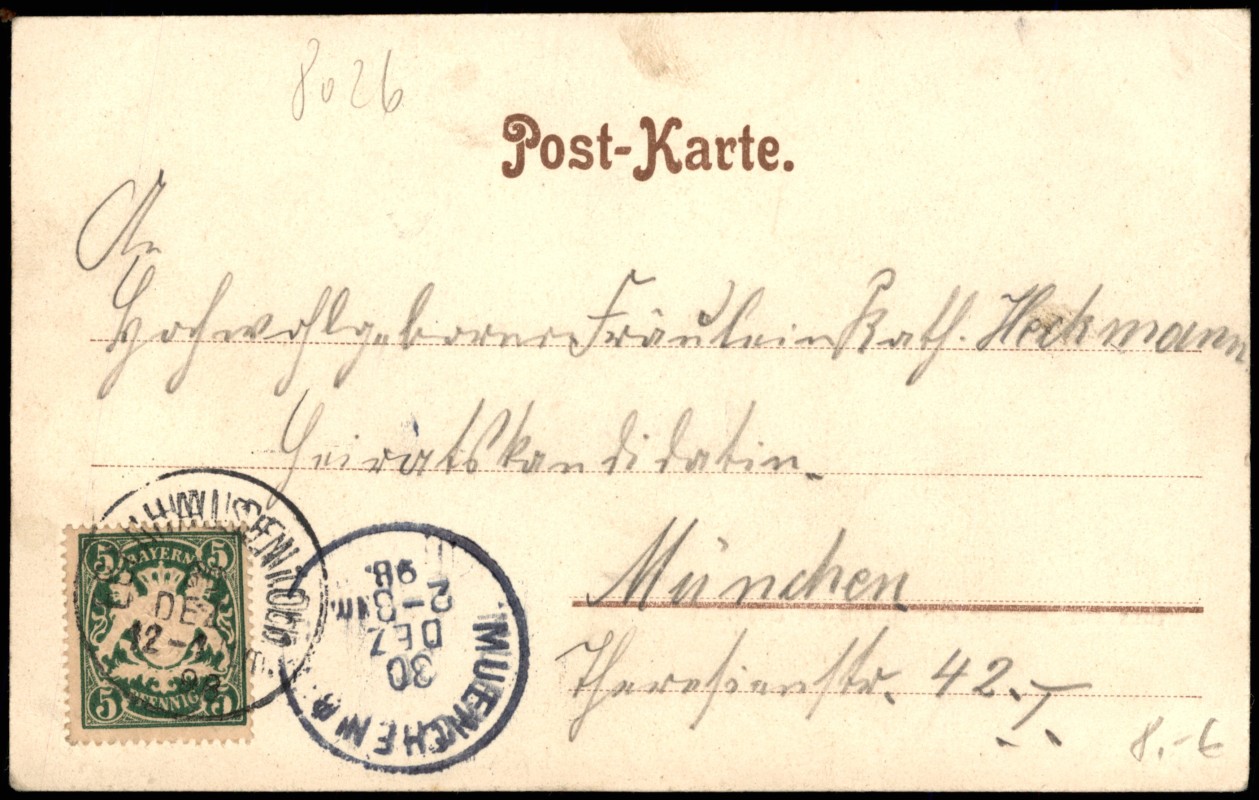 8026
Post-Karte.
An
Hochwohlgeboren Fräulein Kath. Heckmann
Heiratskandidatin
München
Theresienstr. 42.
8.-6
5 5
BAYERN
DEZ
12-1
98
5 5
PFENNIG
MUENCHEN
30
DEZ
2-3
98